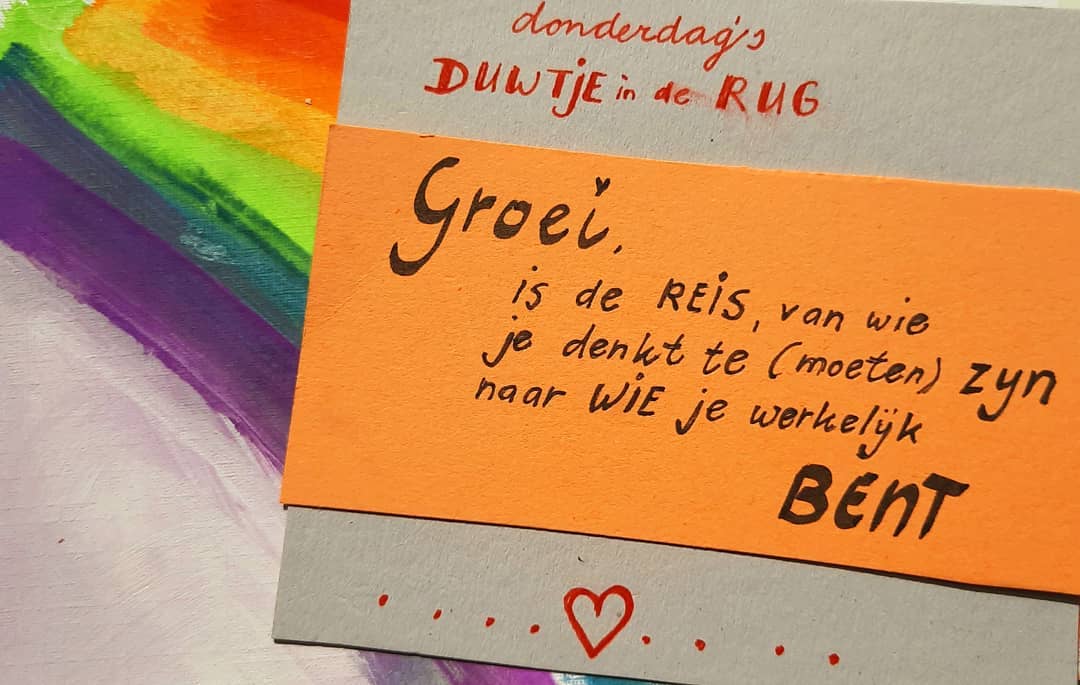 donderdag's
DUWTjE in de RUG
Groei,
is de REiS, van wie
je denkt te (moeten) zyn
naar WiE je werkelijk
BEnT